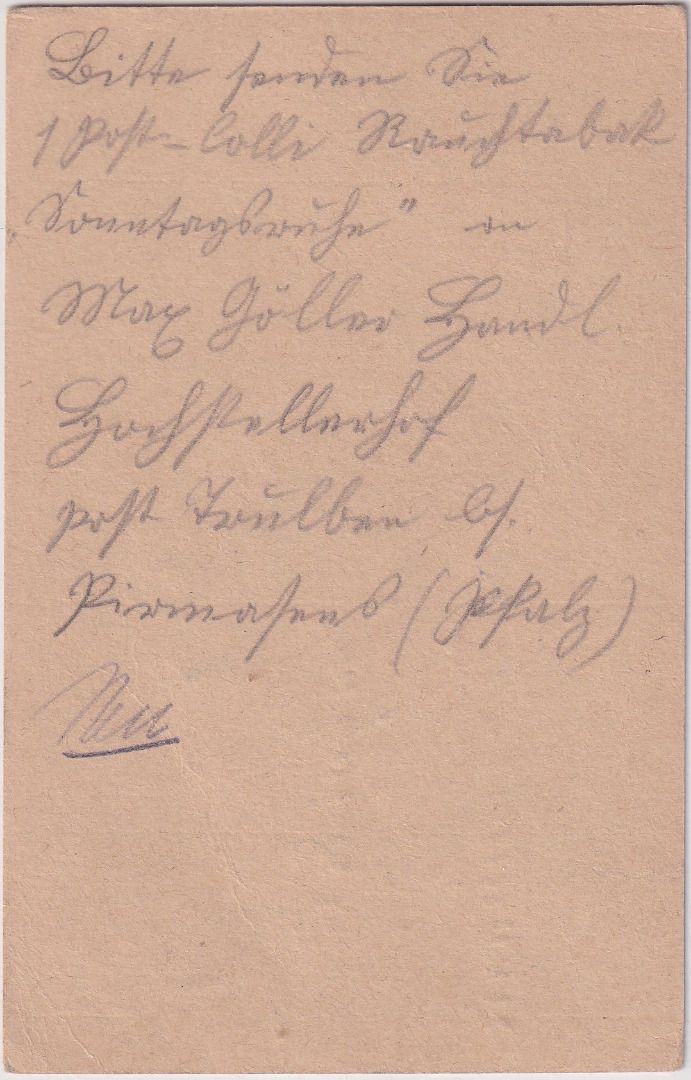 Bitte senden Sie
1 Post-Colli Rauchtabak
„Sonntagsruhe" an
Max Göller Handl.
Hochstellerhof
post Trulben bs.
Pirmasens (Pfalz)
Neu